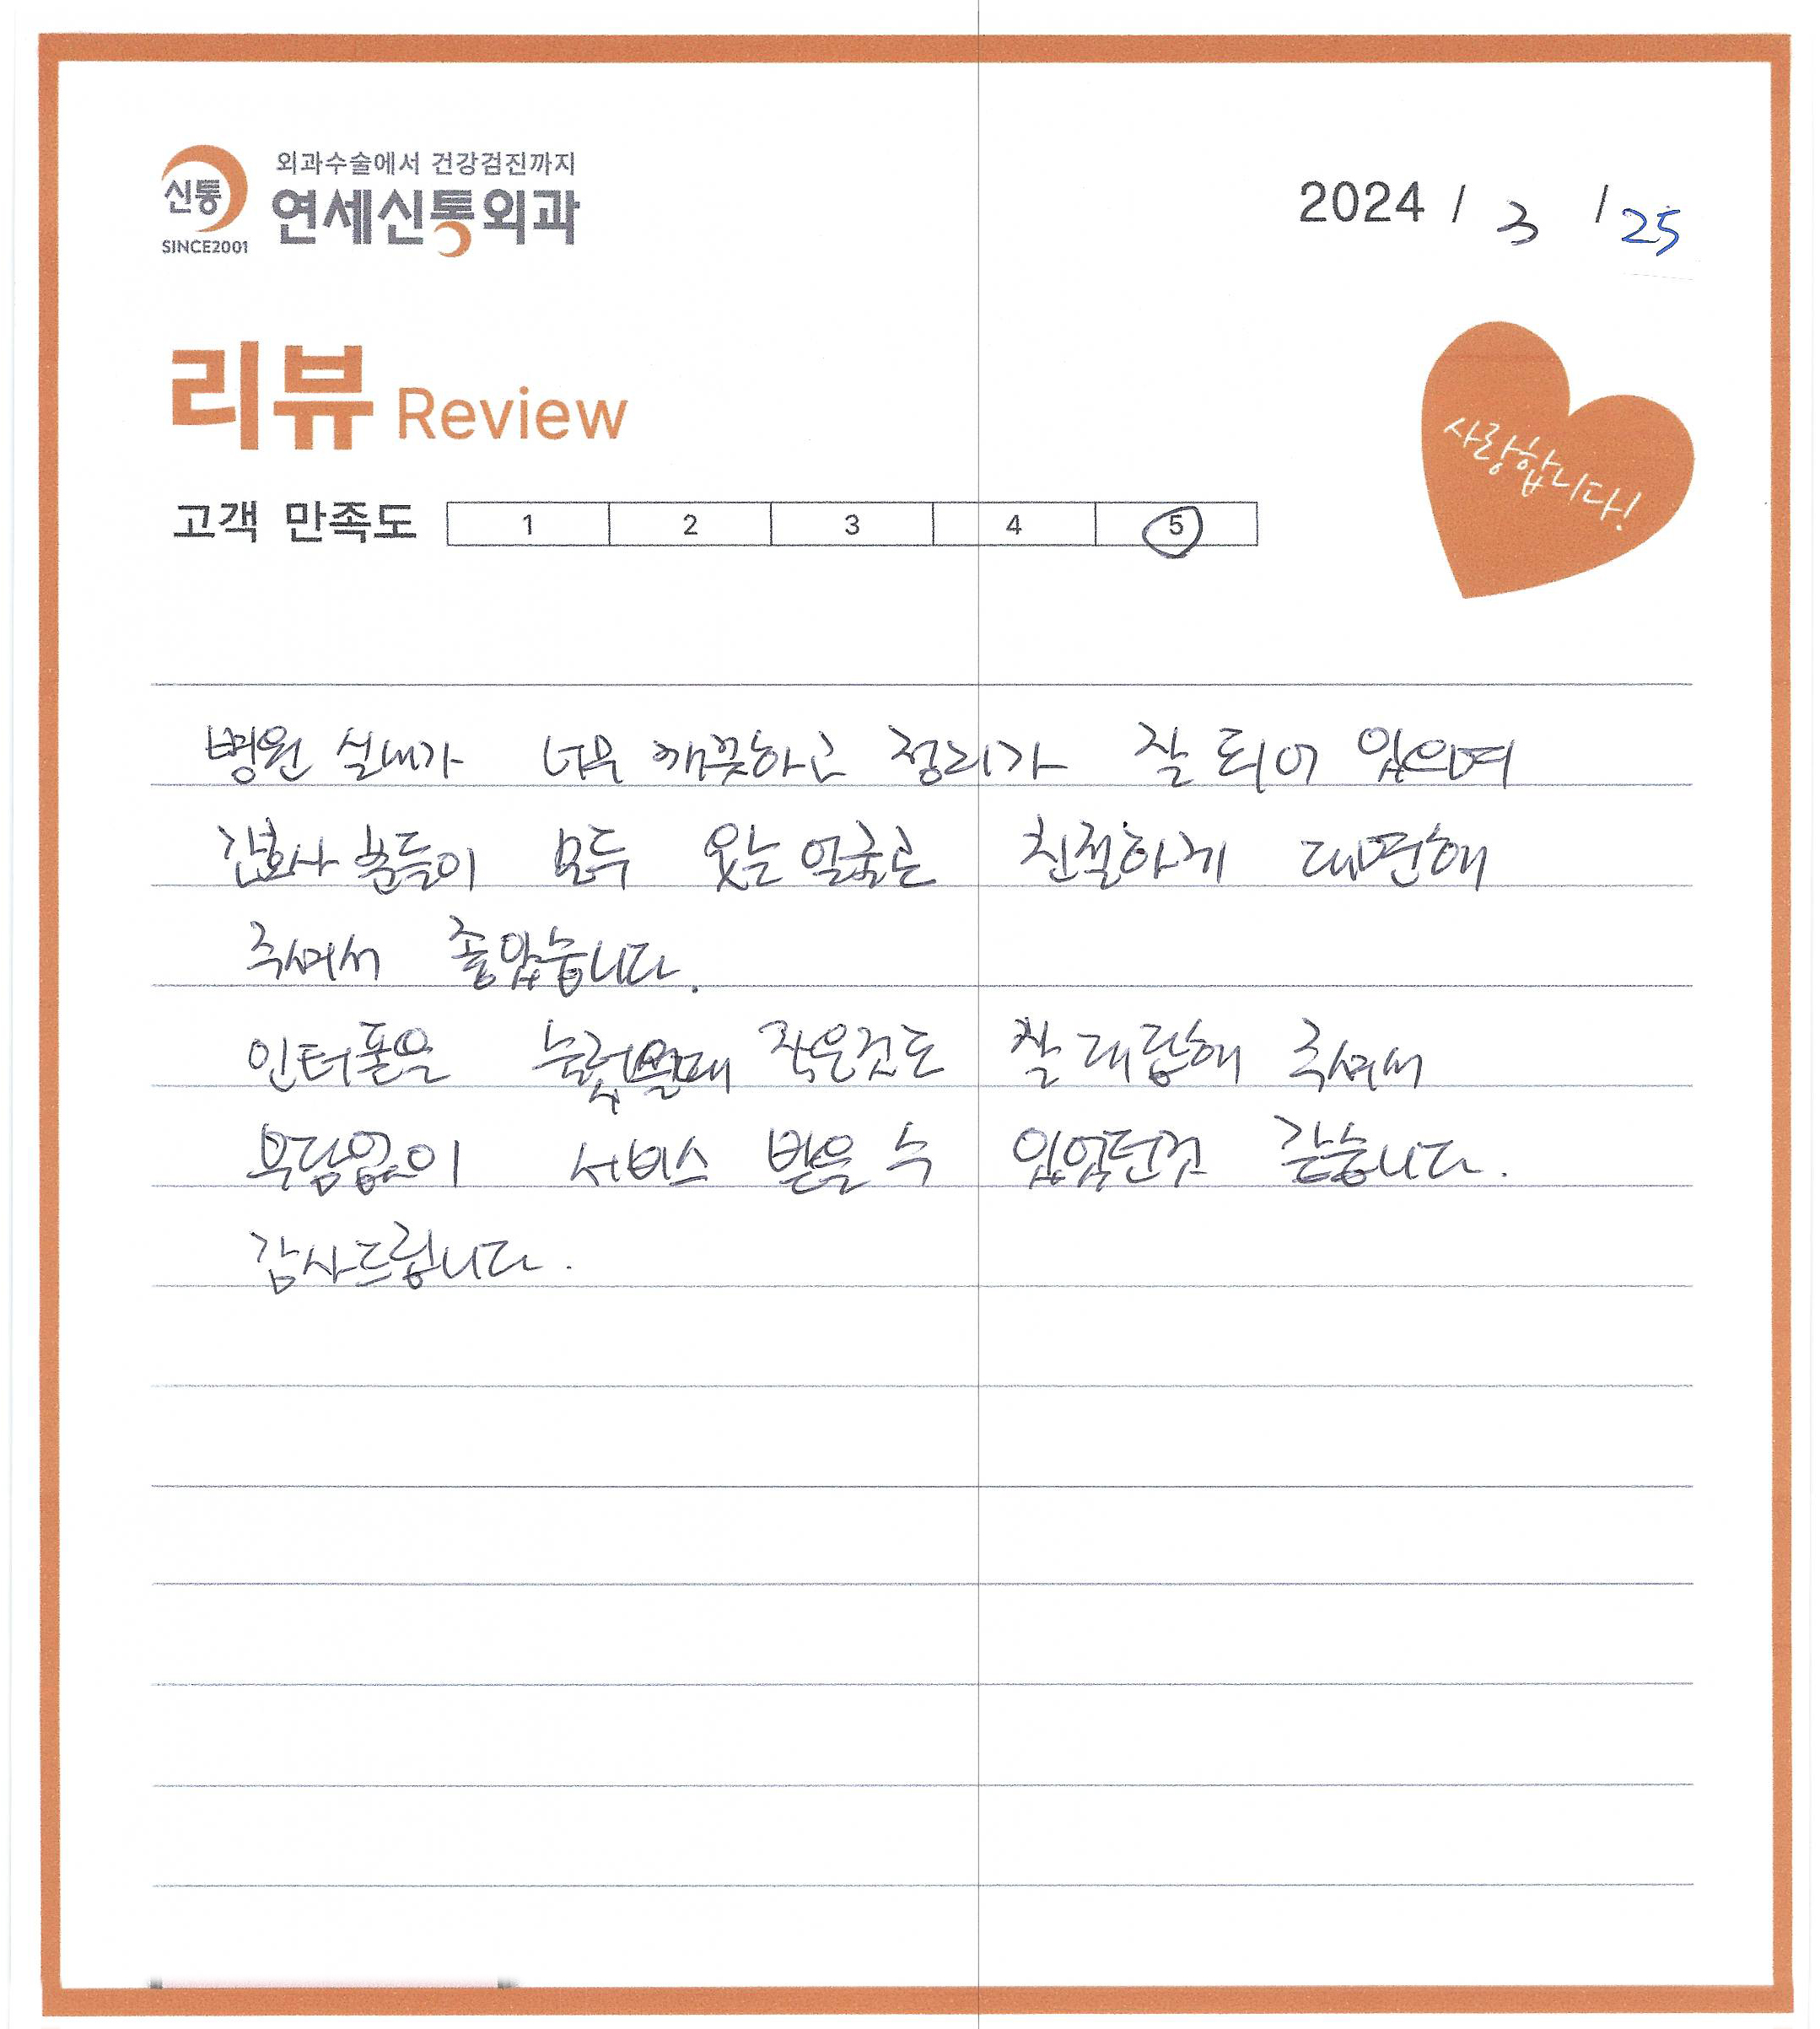 외과수술에서 건강검진까지
신통
연세신통외과
SINCE2001
2024 / 3 / 25
리뷰 Review
사랑합니다!
고객 만족도 1 2 3 4 5
병원 실내가 너무 깨끗하고 정리가 잘 되어 있으며
간호사 분들이 모두 웃는 얼굴로 친절하게 대면해
주셔서 좋았습니다.
인터폰을 눌렀을때 작은것도 잘 대답해 주셔서
부담없이 서비스 받을 수 있었던것 같습니다.
감사드립니다.